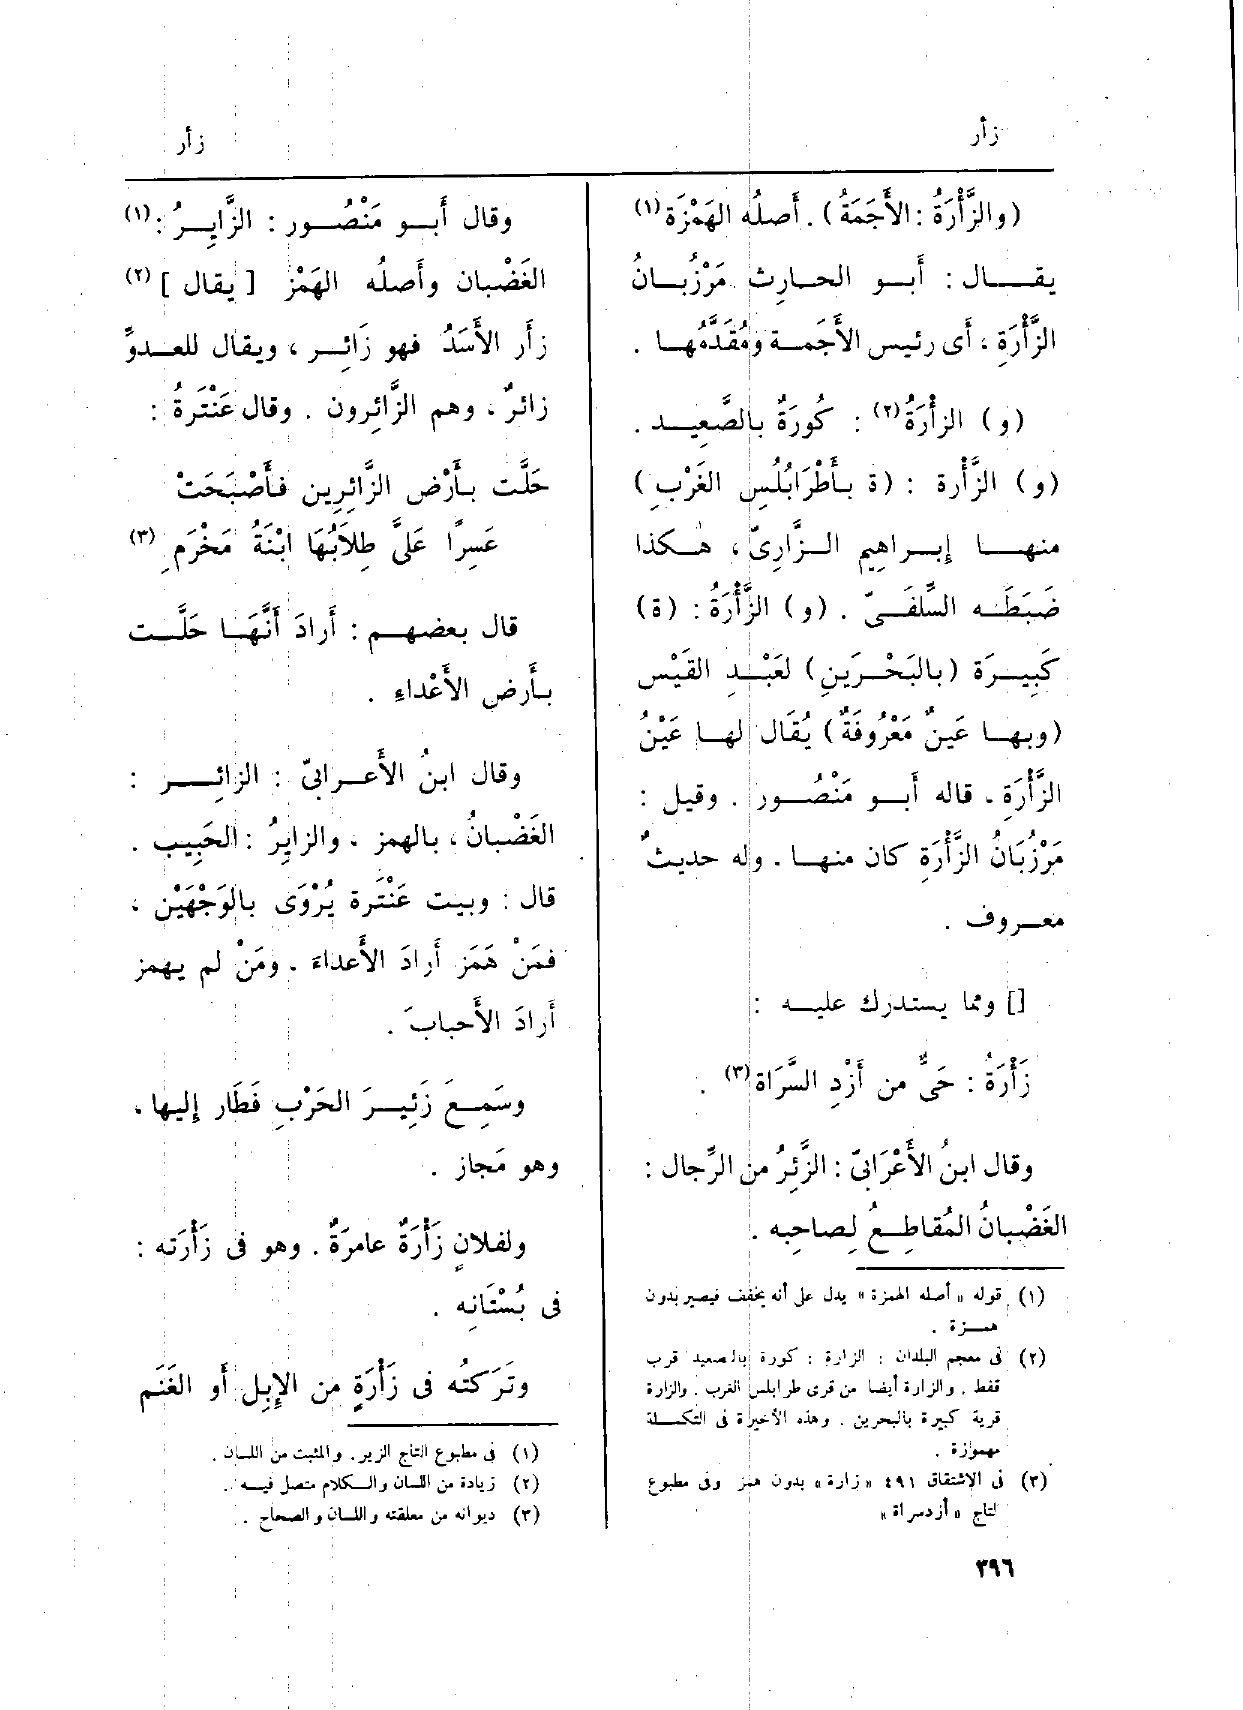 زأر
زأر
(والزَّأْرَةُ : الأَجَمَةُ) . أَصلُه الهَمْزَة (١)
يقــال : أَبــو الحــارِث مَرْزُبــانُ
الزَّأْرَةِ ، أى رئيس الأَجَمــة ومُقَدَّمُهــا .
(و) الزأْرَةُ (٢) : كُورَةٌ بالصَّعِيــد .
(و) الزَّأْرة : (ة بـأَطْرَابُلُسِ الغَرْبِ )
منهــا إبــراهيم الــزَّارِىّ ، هٰــكذا
ضَبَطَــه السِّلَفــىّ . (و) الزَّأْرَةُ : (ة)
كَبِيــرَة (بالبَحْــرَينِ) لعَبْــدِ القَيْس
(وبهــا عَينٌ مَعْرُوفَةٌ) يُقَال لهــا عَيْنُ
الزَّأْرَةِ . قاله أَبــو مَنْصُــور . وقيل :
مَرْزُبَانُ الزَّأْرَةِ كان منهــا . وله حديثٌ
معــروف .
[] ومما يستدرك عليــه :
زَأْرَةُ : حَىٌّ من أَزْدِ السَّرَاة (٣) .
وقال ابنُ الأَعْرَابىّ : الزَّئِرُ من الرِّجال :
الغَضْبانُ المُقاطِــعُ لِصاحِبِه .
(١) قوله « أصله الهمزة » يدل على أنه يخفف فيصير بدون
همــزة .
(٢) فى معجم البلدان : الزارة : كورة بالصعيد قرب
قفط . والزارة أيضا من قرى طرابلس الغرب . والزارة
قرية كبيرة بالبحرين . وهذه الأخيرة فى التكملــة
مهموزة .
(٣) فى الإشتقاق ٤٩١ « زارة » بدون همز وفى مطبوع
التاج « أزدسراة »
وقال أَبــو مَنْصُــور : الزَّايِــرُ : (١)
الغَضْبان وأَصلُه الهَمْز [ يقال ] (٢)
زأَر الأَسَدُ فهو زَائِــر ، ويقال للعــدوِّ
زائرٌ ، وهم الزَّائِرون . وقال عَنْتَرةُ :
حَلَّت بـأَرْضِ الزَّائِرِين فـأَصْبَحَتْ
عَسِرًا عَلَىَّ طِلَابُهَا ابْنَةُ مَخْرَمِ (٣)
قال بعضهــم : أَرادَ أَنَّهَــا حَلَّــت
بـأَرض الأَعْداءِ .
وقال ابنُ الأَعــرابىّ : الزائِــر :
الغَضْبانُ ، بالهمز . والزايِرُ : الحَبِيب .
قال : وبيت عَنْتَرة يُرْوَى بالوَجْهَيْن ،
فمَنْ هَمَز أَرادَ الأَعداءَ . ومَنْ لم يهمز
أَرادَ الأَحبابَ .
وسَمِــعَ زَئِيــرَ الحَرْبِ فَطَار إليها ،
وهو مَجاز .
ولفلانٍ زَأْرَةٌ عامرَةٌ . وهو فى زَأْرَته :
فى بُسْتَانِه .
وتَرَكتُه فى زَأْرَةٍ من الإِبِل أَو الغَنَم
(١) فى مطبوع التاج الزير . والمثبت من اللسان .
(٢) زيادة من اللسان والــكلام متصل فيــه .
(٣) ديوانه من معلقته واللسان والصحاح .
٣٩٦